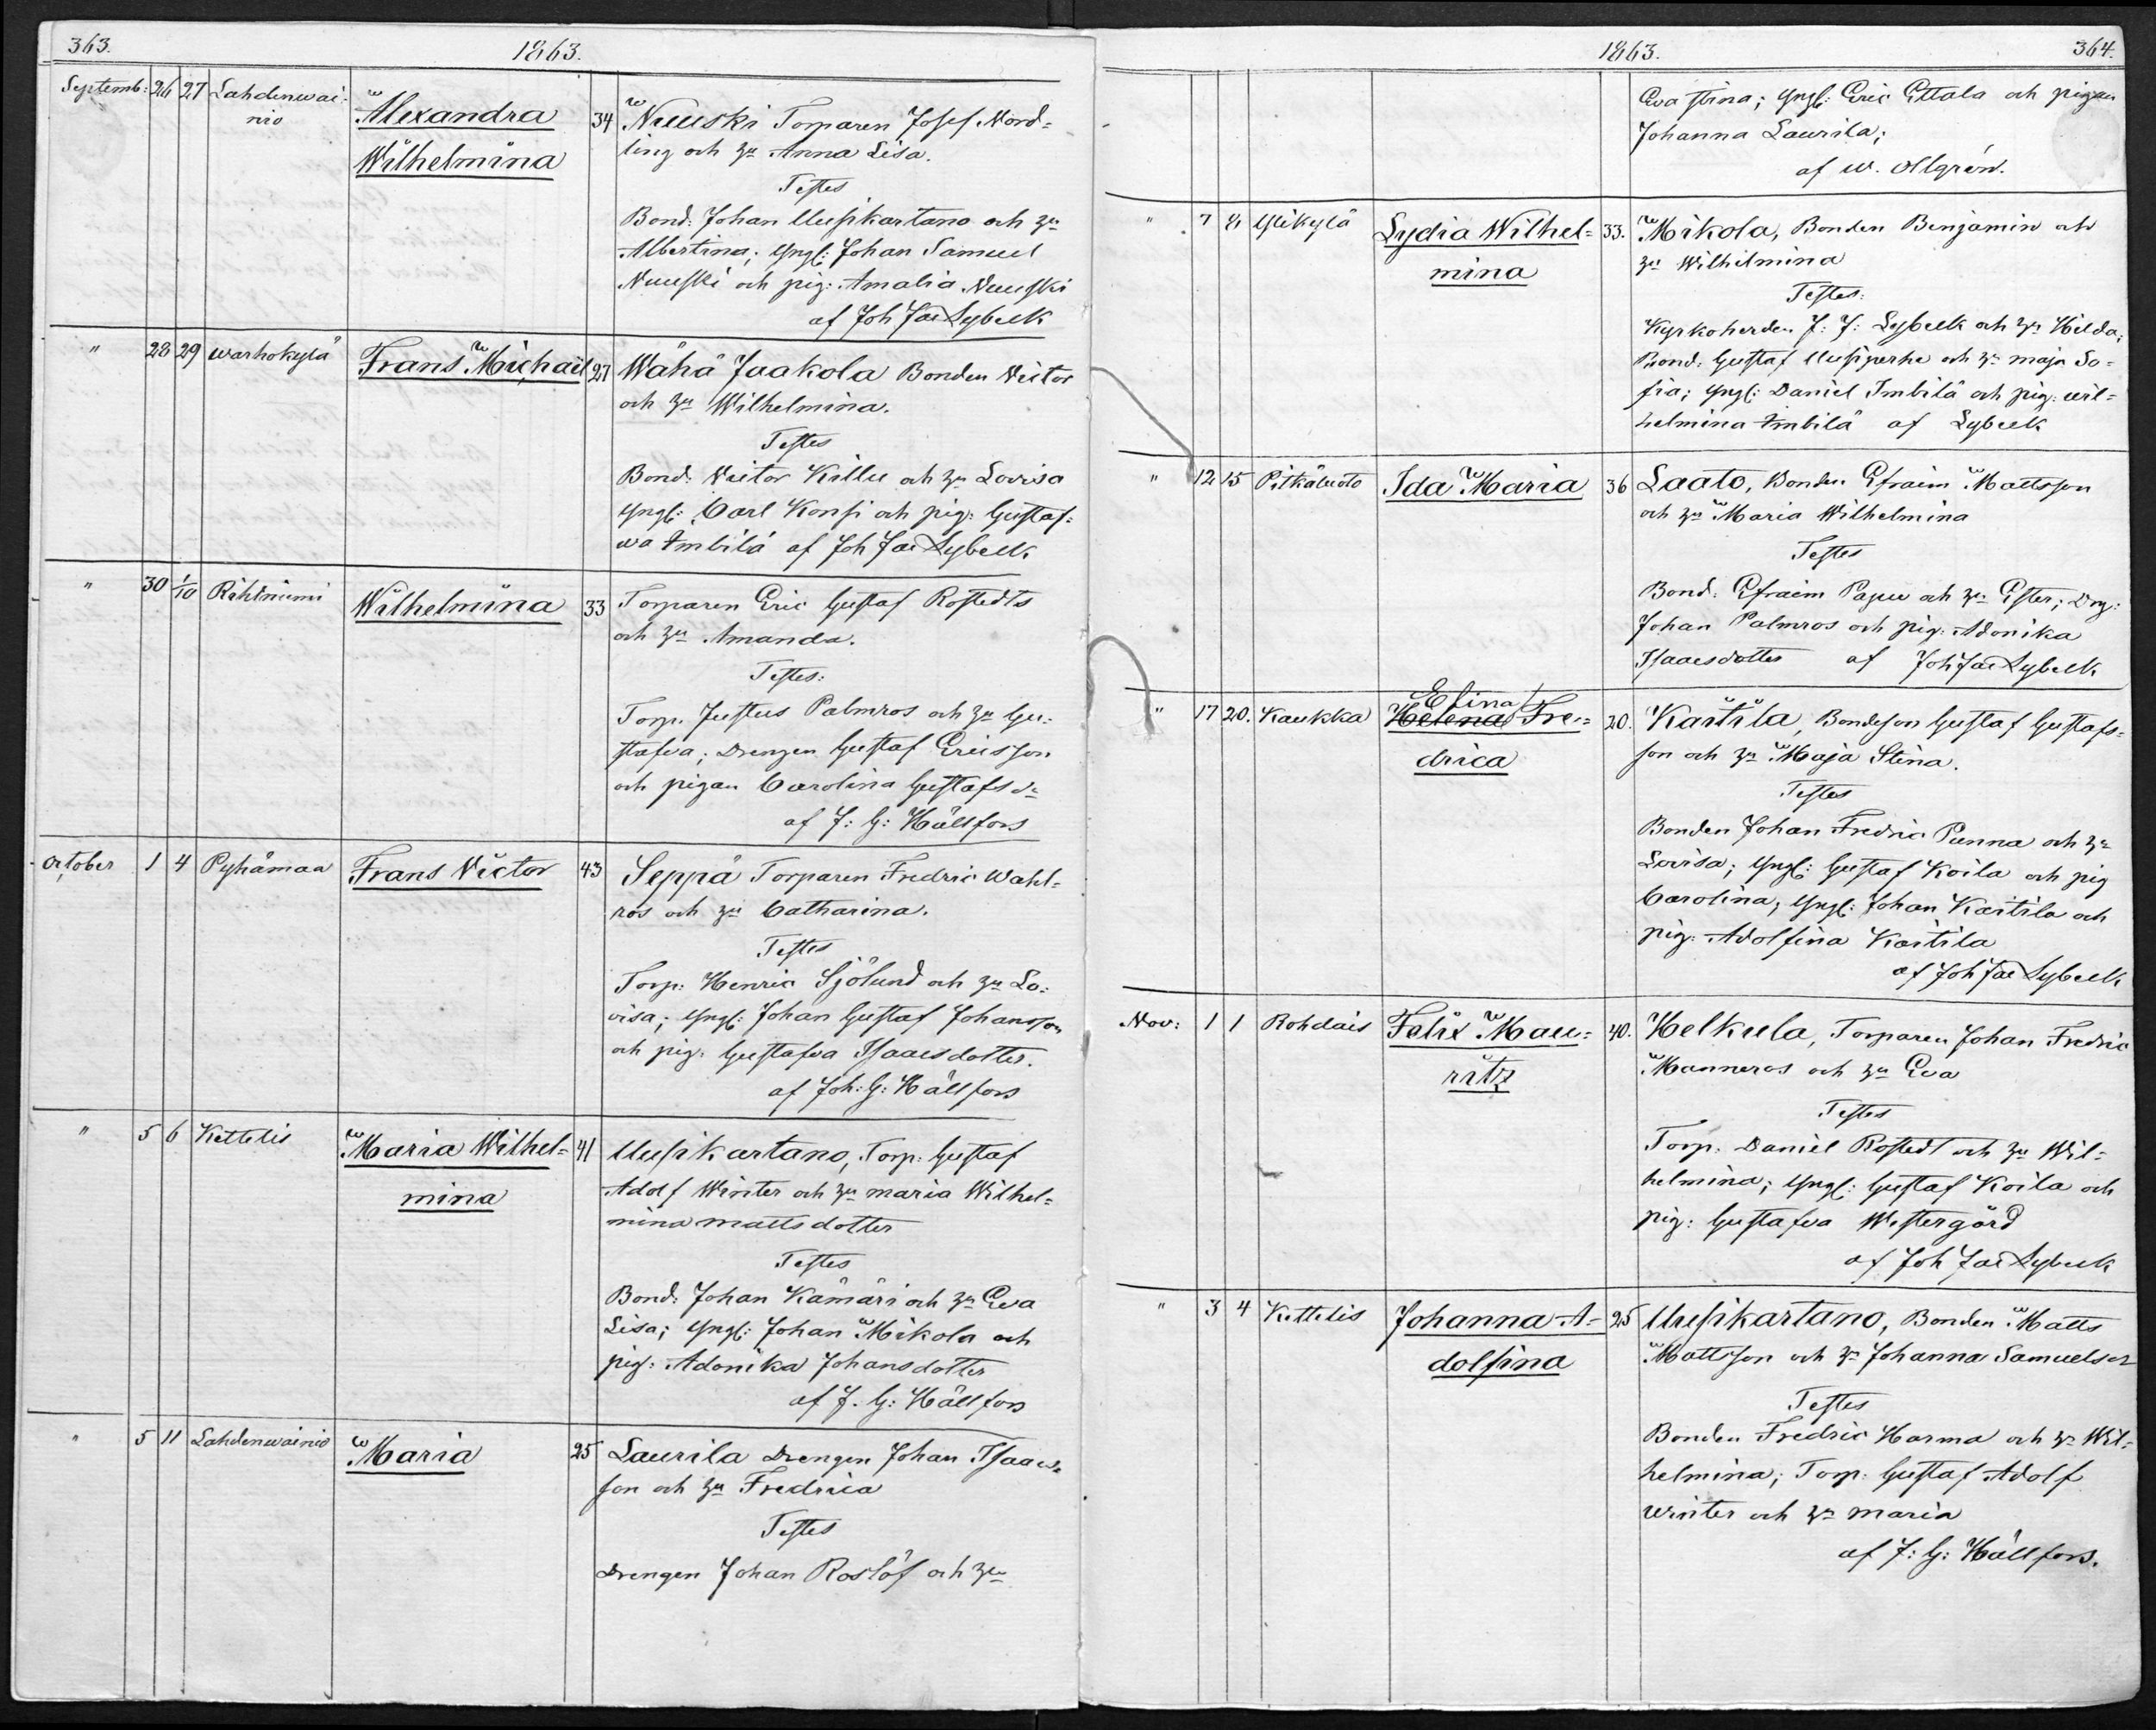 363.
1863.
Septemb: 26 27 Lahdenwai-
nio
Alexandra
Wilhelmina
34 Nuuski Torparen Josef Nord=
ling och hu Anna Lisa.
Testes
Bond: Johan Uusikartano och hu
Albertina; Yngl: Johan Samuel
Nuuski och pig: Amalia Nuuski
af Joh Jac Lybeck
" 28 29 warhokylä Frans Michaël 27 Wähä Jaakola Bonden Victor
och hu Wilhelmina.
Testes
Bond: Victor Killu och hu Lovisa
Yngl: Carl Konsi och pig: Gustaf=
wa Imbilä af Joh Jac Lybeck.
" 30 1/10 Rihtniemi Wilhelmina 33 Torparen Eric Gustaf Rostedts
och hu Amanda.
Testes:
Torp. Justus Palmros och hu Gu-
stafva; Drengen Gustaf Ericsson
och pigan Carolina Gustafs dr
af J: G: Hällfors
October 1 4 Pyhämaa Frans Victor 43 Seppä Torparen Fredric Wahl=
ros och hu Catharina.
Testes
Torp: Henric Sjölund och hu Lo-
visa; Yngl: Johan Gustaf Johansson
och pig: Gustafva Isaacsdotter.
af Joh: G: Hällfors
" 5 6 Kettelis Maria Wilhel=
mina
41 Uusikartano, Torp: Gustaf
Adolf Winter och hu maria Wilhel=
mina mattsdotter
Testes
Bond: Johan Kämäri och hu Eva
Lisa; Yngl: Johan Mikola och
pig: Adonika Johansdotter
af J. G: Hällfors
" 5 11 Lahdenwainio Maria 25 Laurila Drengen Johan Isaacs-
son och hu Fredrica
Testes
Drengen Johan Roslöf och hu
1863.
364.
Eva Stina; Yngl: Eric Ettala och pigan
Johanna Laurila;
af W. Ollgrén.
" 7 8 Ylikylä Lydia Wilhel=
mina
33. Mikola, Bonden Benjamin och
hu Wilhelmina
Testes:
Kyrkoherden J: J: Lybeck och hu Hilda;
Bond: Gustaf Uusiperhe och hu maja So=
fia; Yngl: Daniel Imbilä och pig: wil=
helmina Imbilä af Lybeck
" 12 15 Pitkäluoto Ida Maria 36 Laato, Bonden Efraim Mattsson
och hu Maria Wilhelmina
Testes
Bond: Efraim Papu och hu Ester; Drg:
Johan Palmros och pig: Adonika
Isaacsdotter af Joh Jac Lybeck
" 17 20. Kaukka Efina
Helena Fre=
drica
20. Kaitila, Bondeson Gustaf Gustafs=
son och hu Maja Stina.
Testes
Bonden Johan Fredric Punna och hu
Lovisa; Yngl: Gustaf Koila och pig
Carolina; Yngl: Johan Kaitila och
pig: Adolfina Kaitila
af Joh Jac Lybeck
Nov: 1 1 Rohdais Felix Mau=
ritz
40. Helkula, Torparen Johan Fredric
Manneros och hu Eva
Testes
Torp: Daniel Rostedt och hu Wil=
helmina; Yngl: Gustaf Koila och
pig: Gustafva Westergård
af Joh Jac Lybeck
" 3 4 Kettelis Johanna A=
dolfina
25 Uusikartano, Bonden Matts
Mattsson och hu Johanna Samuelsdr
Testes
Bonden Fredric Harma och hu Wil=
helmina; Torp: Gustaf Adolf
Winter och hu maria
af J: G: Hällfors.